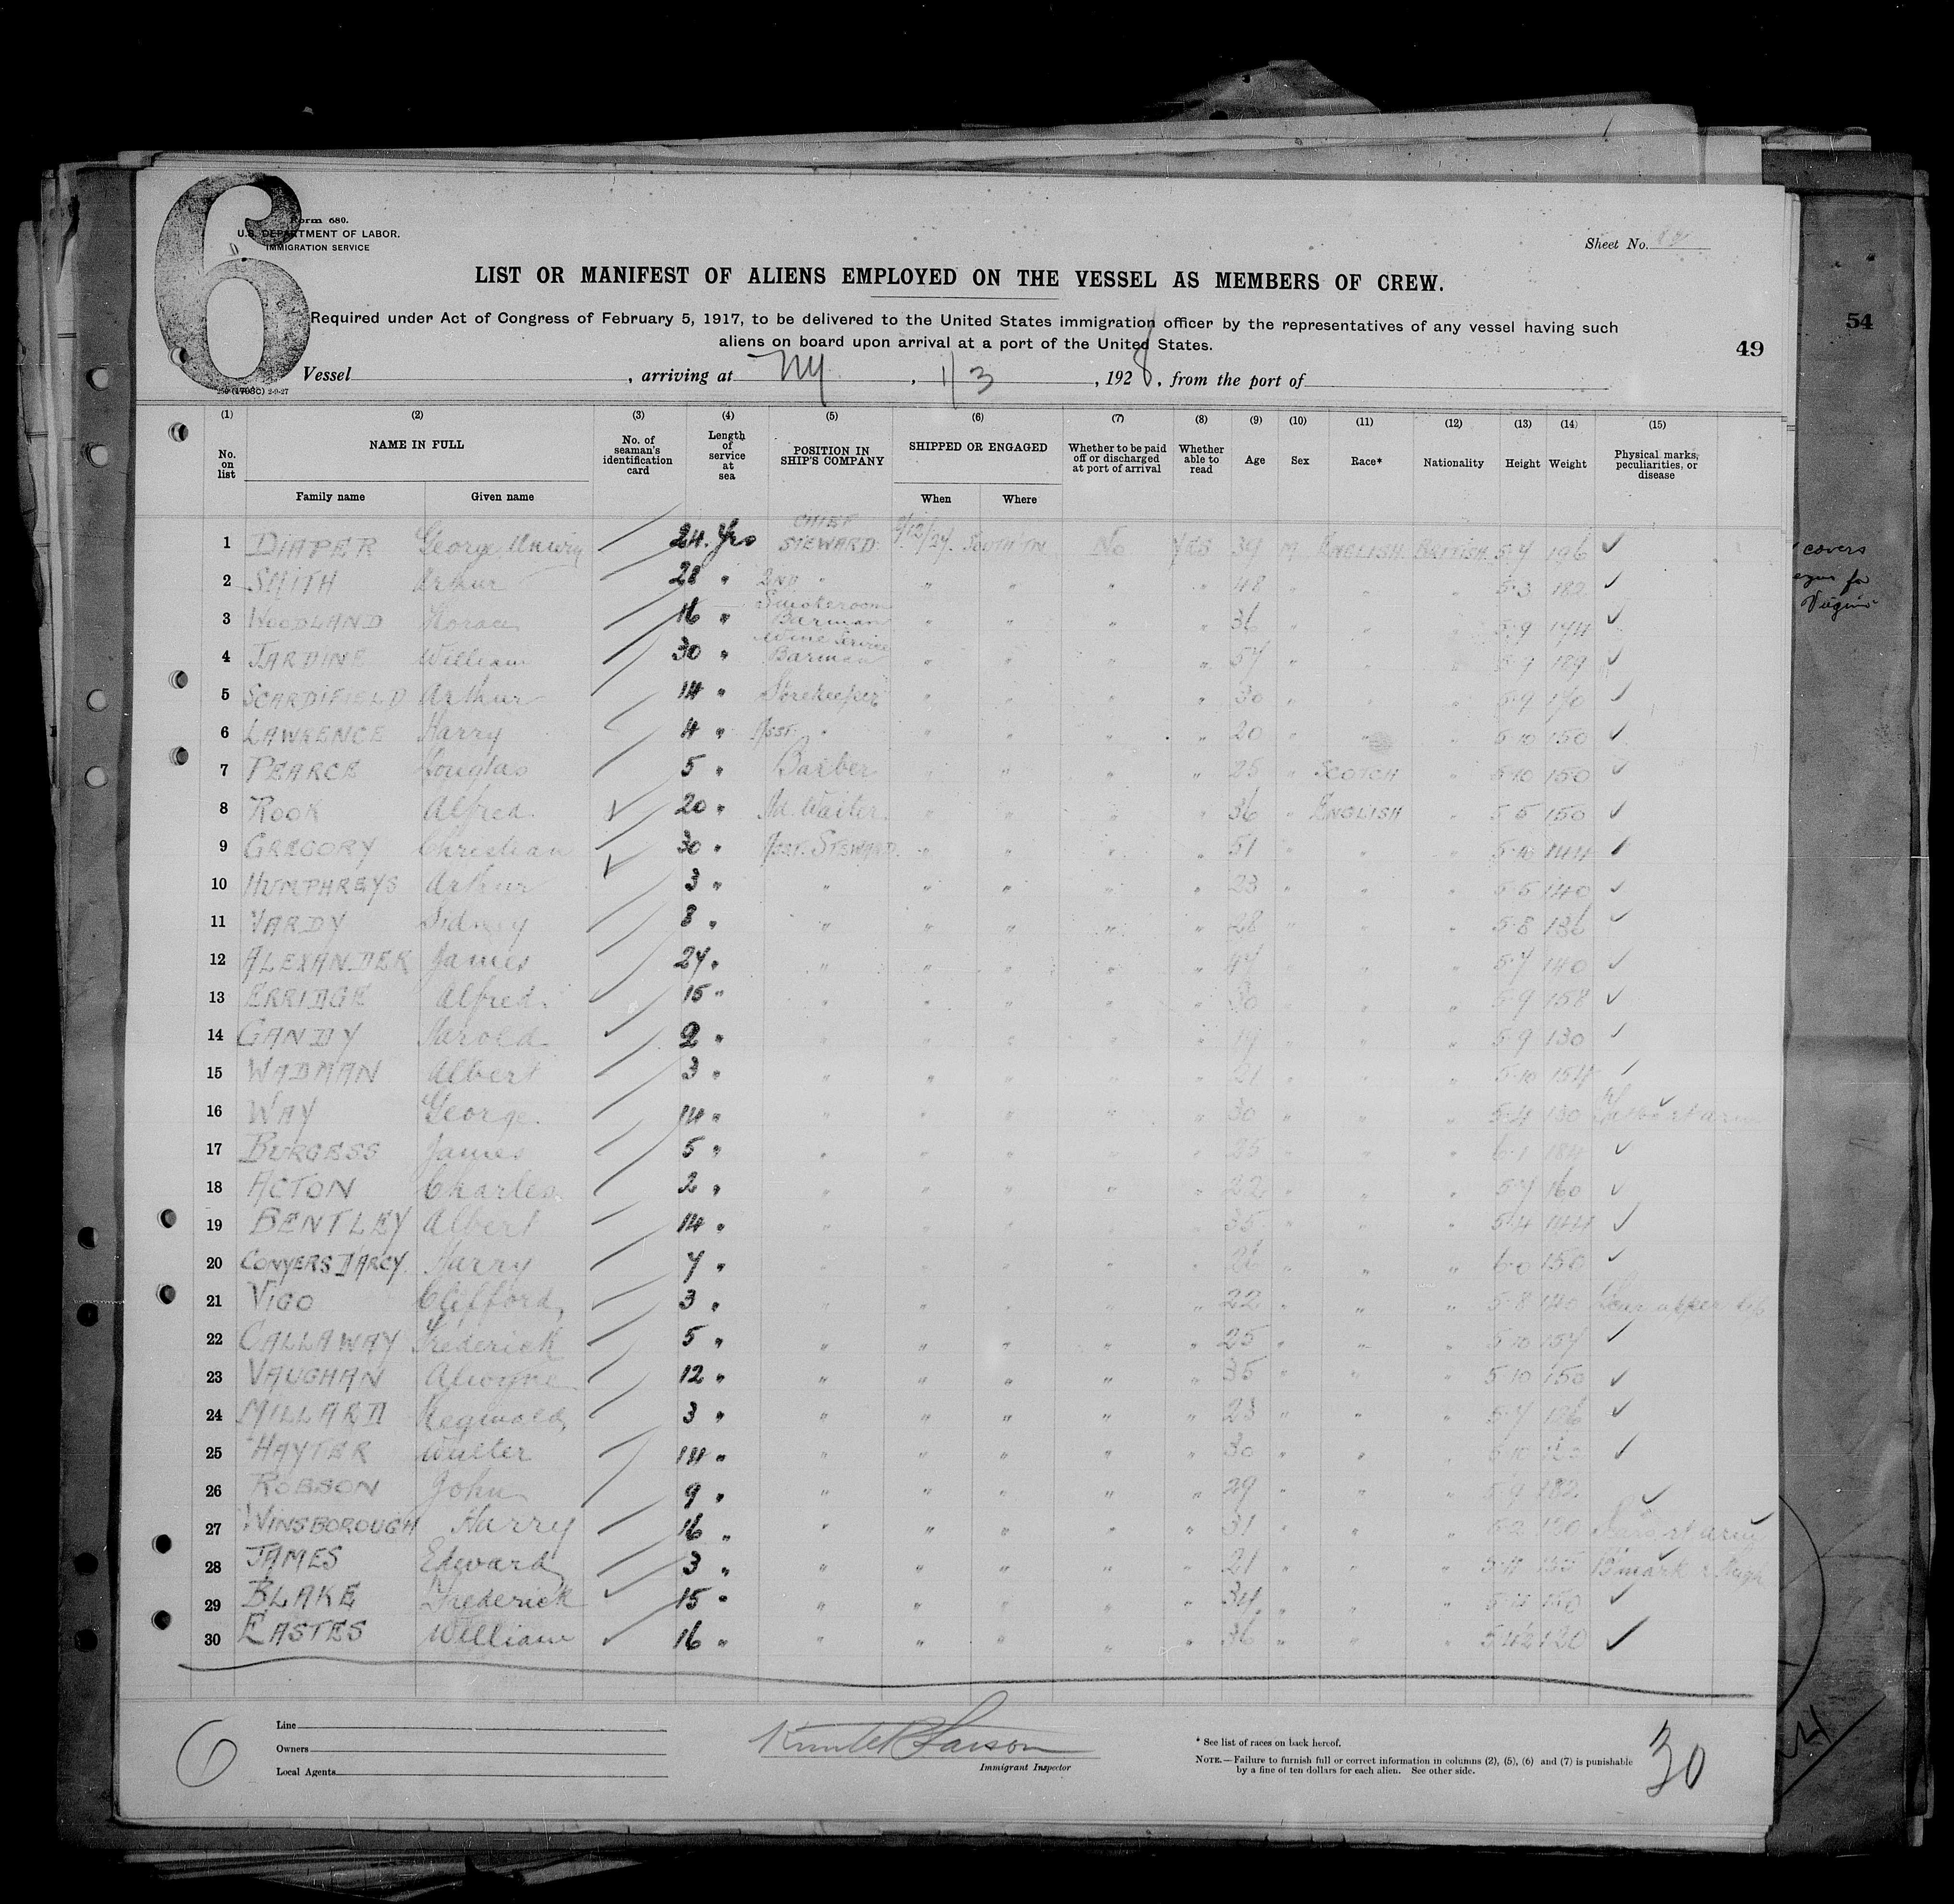 6
Form 680.
U.S. DEPARTMENT OF LABOR.
IMMIGRATION SERVICE
Sheet No.
LIST OR MANIFEST OF ALIENS EMPLOYED ON THE VESSEL AS MEMBERS OF CREW.
Required under Act of Congress of February 5, 1917, to be delivered to the United States immigration officer by the representatives of any vessel having such
aliens on board upon arrival at a port of the United States.
49
54
Vessel , arriving at NY , 1/3 , 1928, from the port of
(1) (2) (3) (4) (5) (6) (7) (8) (9) (10) (11) (12) (13) (14) (15)
No. on list NAME IN FULL No. of seaman's identification card Length of service at sea POSITION IN SHIP'S COMPANY SHIPPED OR ENGAGED Whether to be paid off or discharged at port of arrival Whether able to read Age Sex Race* Nationality Height Weight Physical marks, peculiarities, or disease
Family name Given name When Where
1 DIAPER George Unwin 24 Yrs CHIEF STEWARD SOUTH'TN No YES 39 M ENGLISH BRITISH 5.7 196 ✓
2 SMITH Arthur 28 " 2ND " " " " " 48 " " " 5.3 182 ✓
3 WOODLAND Horace 16 " Smokeroom Barman " " " " 36 " " " 5.9 174 ✓
4 JARDINE William 30 " Wine Service Barman " " " " 57 " " " 5.9 189 ✓
5 SCARDIFIELD Arthur 14 " Storekeeper " " " " 30 " " " 5.9 ✓
6 LAWRENCE Harry 4 " Asst. " " " " " 20 " " " 5.10 150 ✓
7 PEARCE Douglas 5 " Barber " " " " 25 " SCOTCH " 5.10 150 ✓
8 ROOK Alfred ✓ 20 " Hd. Waiter " " " " 36 " ENGLISH " 5.5 150 ✓
9 GREGORY Christian ✓ 30 " Asst. STEWARD " " " " 51 " " " 144 ✓
10 HUMPHREYS Arthur 3 " " " " " " 23 " " " 5.5 140 ✓
11 VARDY Sidney 8 " " " " " " 28 " " " 5.8 136 ✓
12 ALEXANDER James 27 " " " " " " 47 " " " 5.7 140 ✓
13 ERRIDGE Alfred 15 " " " " " " 30 " " " 5.9 158 ✓
14 GANDY Harold 2 " " " " " " 19 " " " 5.9 130 ✓
15 WADMAN Albert 3 " " " " " " 21 " " " 5.10 154 ✓
16 WAY George 14 " " " " " " 30 " " " 5.4 130 arm
17 BURGESS James 5 " " " " " " 25 " " " 6.1 184 ✓
18 ACTON Charles 2 " " " " " " 22 " " " 5.7 160 ✓
19 BENTLEY Albert 14 " " " " " " 35 " " " 5.4 144 ✓
20 CONYERS D'ARCY Harry 7 " " " " " " 26 " " " 6.0 150 ✓
21 VIGO Clifford 3 " " " " " " 22 " " " 5.8 140 Scar upper lip
22 CALLAWAY Frederick 5 " " " " " " 25 " " " 5.10 157 ✓
23 VAUGHAN Alwyne 12 " " " " " " 35 " " " 5.10 150 ✓
24 MILLARD Reginald 3 " " " " " " 23 " " " 5.7 126 ✓
25 HAYTER Walter 14 " " " " " " 30 " " " 5.10 ✓
26 ROBSON John 9 " " " " " " 29 " " " 5.9 182 ✓
27 WINSBOROUGH Harry 16 " " " " " " 31 " " " 5.2 130 arm
28 JAMES Edward 3 " " " " " " 21 " " " B mark r thigh
29 BLAKE Frederick 15 " " " " " " 34 " " " 5.4 150 ✓
30 EASTES William 16 " " " " " " 36 " " " 5.4½ 120 ✓
covers
Virginia
6
Line
Owners
Local Agents
Larson
Immigrant Inspector
* See list of races on back hereof.
NOTE.—Failure to furnish full or correct information in columns (2), (5), (6) and (7) is punishable
by a fine of ten dollars for each alien. See other side.
30